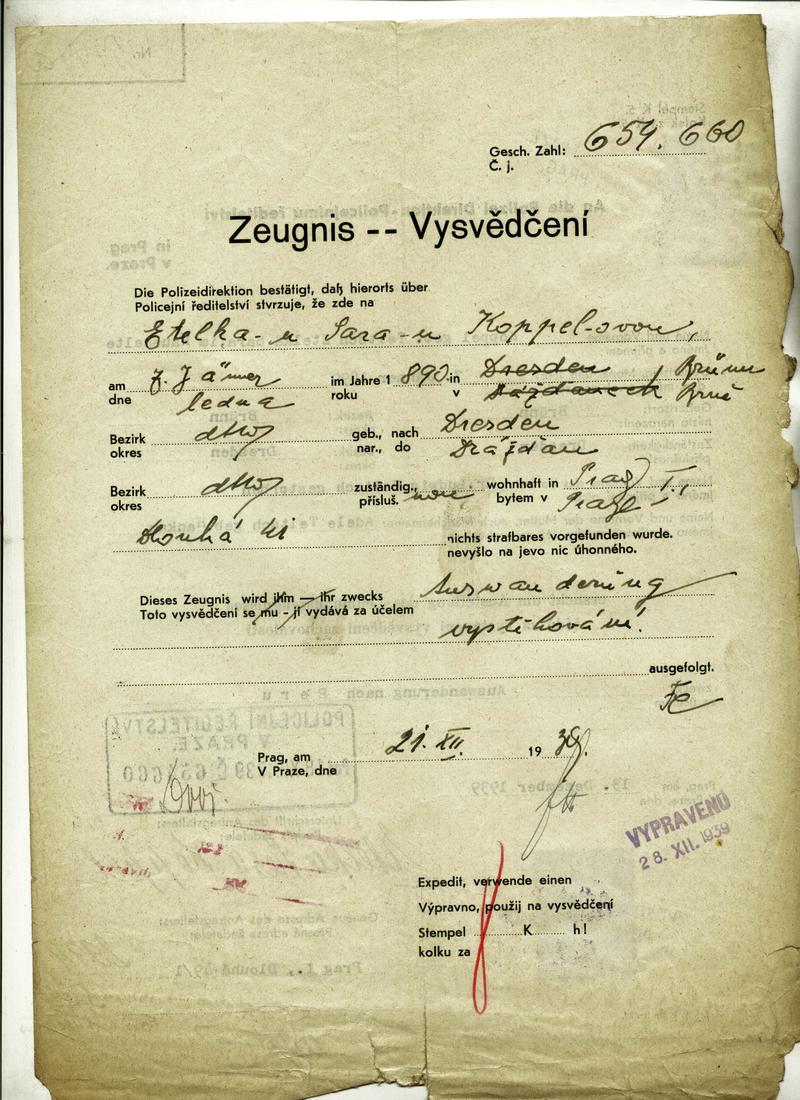 Gesch. Zahl: 654.660
Č. j.
Zeugnis -- Vysvědčení
Die Polizeidirektion bestätigt, daß hierorts über
Policejní ředitelství stvrzuje, že zde na
Etelka-u Sara-u Koppel-ovou,
am 7. Jänner im Jahre 1 890 in Dresden, Brünn
dne ledna roku v Drážďanech Brně
Bezirk dtto geb., nach Dresden
okres nar., do Drážďan
Bezirk dtto zuständig, wohnhaft in Prag I.,
okres přísluš. nou bytem v Praze
Dlouhá nichts strafbares vorgefunden wurde.
nevyšlo na jevo nic úhonného.
Dieses Zeugnis wird ihm — ihr zwecks Auswanderung
Toto vysvědčení se mu - jí vydává za účelem vystěhování.
ausgefolgt.
Prag, am 21. XII. 19 39.
V Praze, dne
POLICEJNÍ ŘEDITELSTVÍ
V PRAZE.
VYPRAVENO
28. XII. 1939
Expedit, verwende einen
Výpravno, použij na vysvědčení
Stempel K h!
kolku za